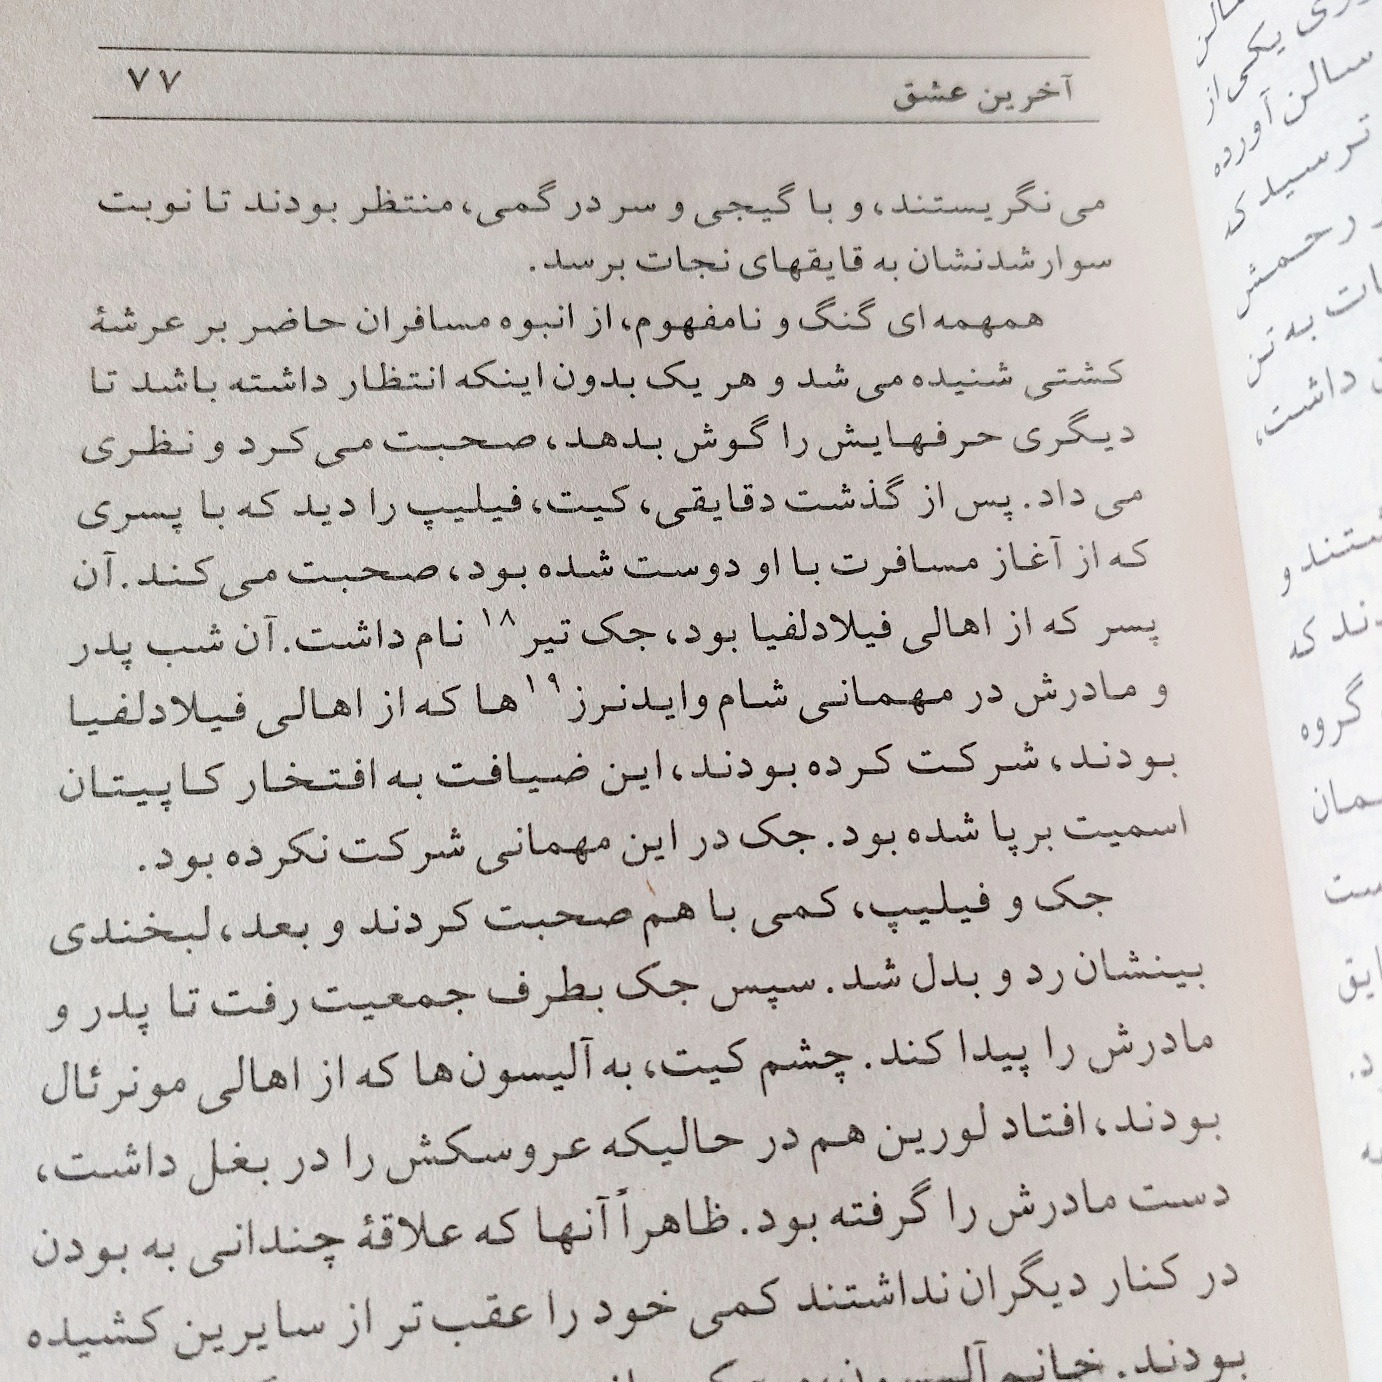 آخرین عشق ۷۷
می نگریستند، و با گیجی و سر در گمی، منتظر بودند تا نوبت
سوار شدنشان به قایقهای نجات برسد.
همهمه ای گنگ و نامفهوم، از انبوه مسافران حاضر بر عرشهٔ
کشتی شنیده می شد و هر یک بدون اینکه انتظار داشته باشد تا
دیگری حرفهایش را گوش بدهد، صحبت می کرد و نظری
می داد. پس از گذشت دقایقی، کیت، فیلیپ را دید که با پسری
که از آغاز مسافرت با او دوست شده بود، صحبت می کند. آن
پسر که از اهالی فیلادلفیا بود، جک تیر۱۸ نام داشت. آن شب پدر
و مادرش در مهمانی شام وایدنرز۱۹ ها که از اهالی فیلادلفیا
بودند، شرکت کرده بودند، این ضیافت به افتخار کاپیتان
اسمیت برپا شده بود. جک در این مهمانی شرکت نکرده بود.
جک و فیلیپ، کمی با هم صحبت کردند و بعد، لبخندی
بینشان رد و بدل شد. سپس جک بطرف جمعیت رفت تا پدر و
مادرش را پیدا کند. چشم کیت، به آلیسون‌ها که از اهالی مونرئال
بودند، افتاد لورین هم در حالیکه عروسکش را در بغل داشت،
دست مادرش را گرفته بود. ظاهراً آنها که علاقهٔ چندانی به بودن
در کنار دیگران نداشتند کمی خود را عقب تر از سایرین کشیده
بودند. خانم آلیسون،
سالن
یکی از
سالن آورده
ترسید که
رحمش
به تن
داشت،
و
که
گروه